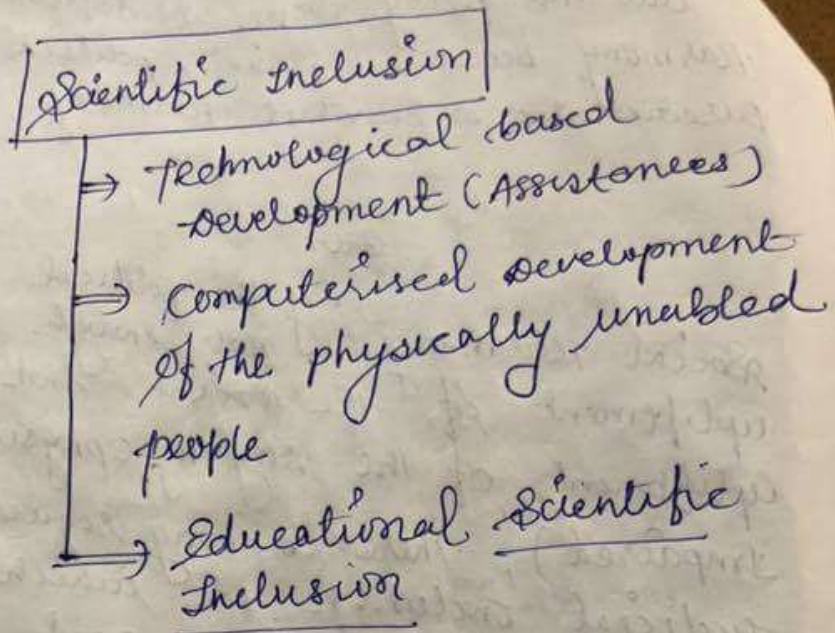 Scientific Inclusion
⇒ Technological based
Development (Assistances)
⇒ Computerised Development
of the physically unabled
people
⇒ Educational Scientific
Inclusion